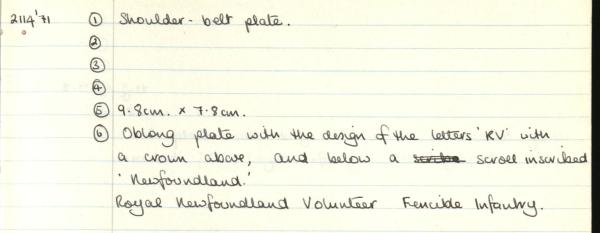 2114'71 ① Shoulder-belt plate.
②
③
④
⑤ 9.8cm. × 7.8cm.
⑥ Oblong plate with the design of the letters 'RV' with
a crown above, and below a scroll inscribed
'Newfoundland.'
Royal Newfoundland Volunteer Fencible Infantry.